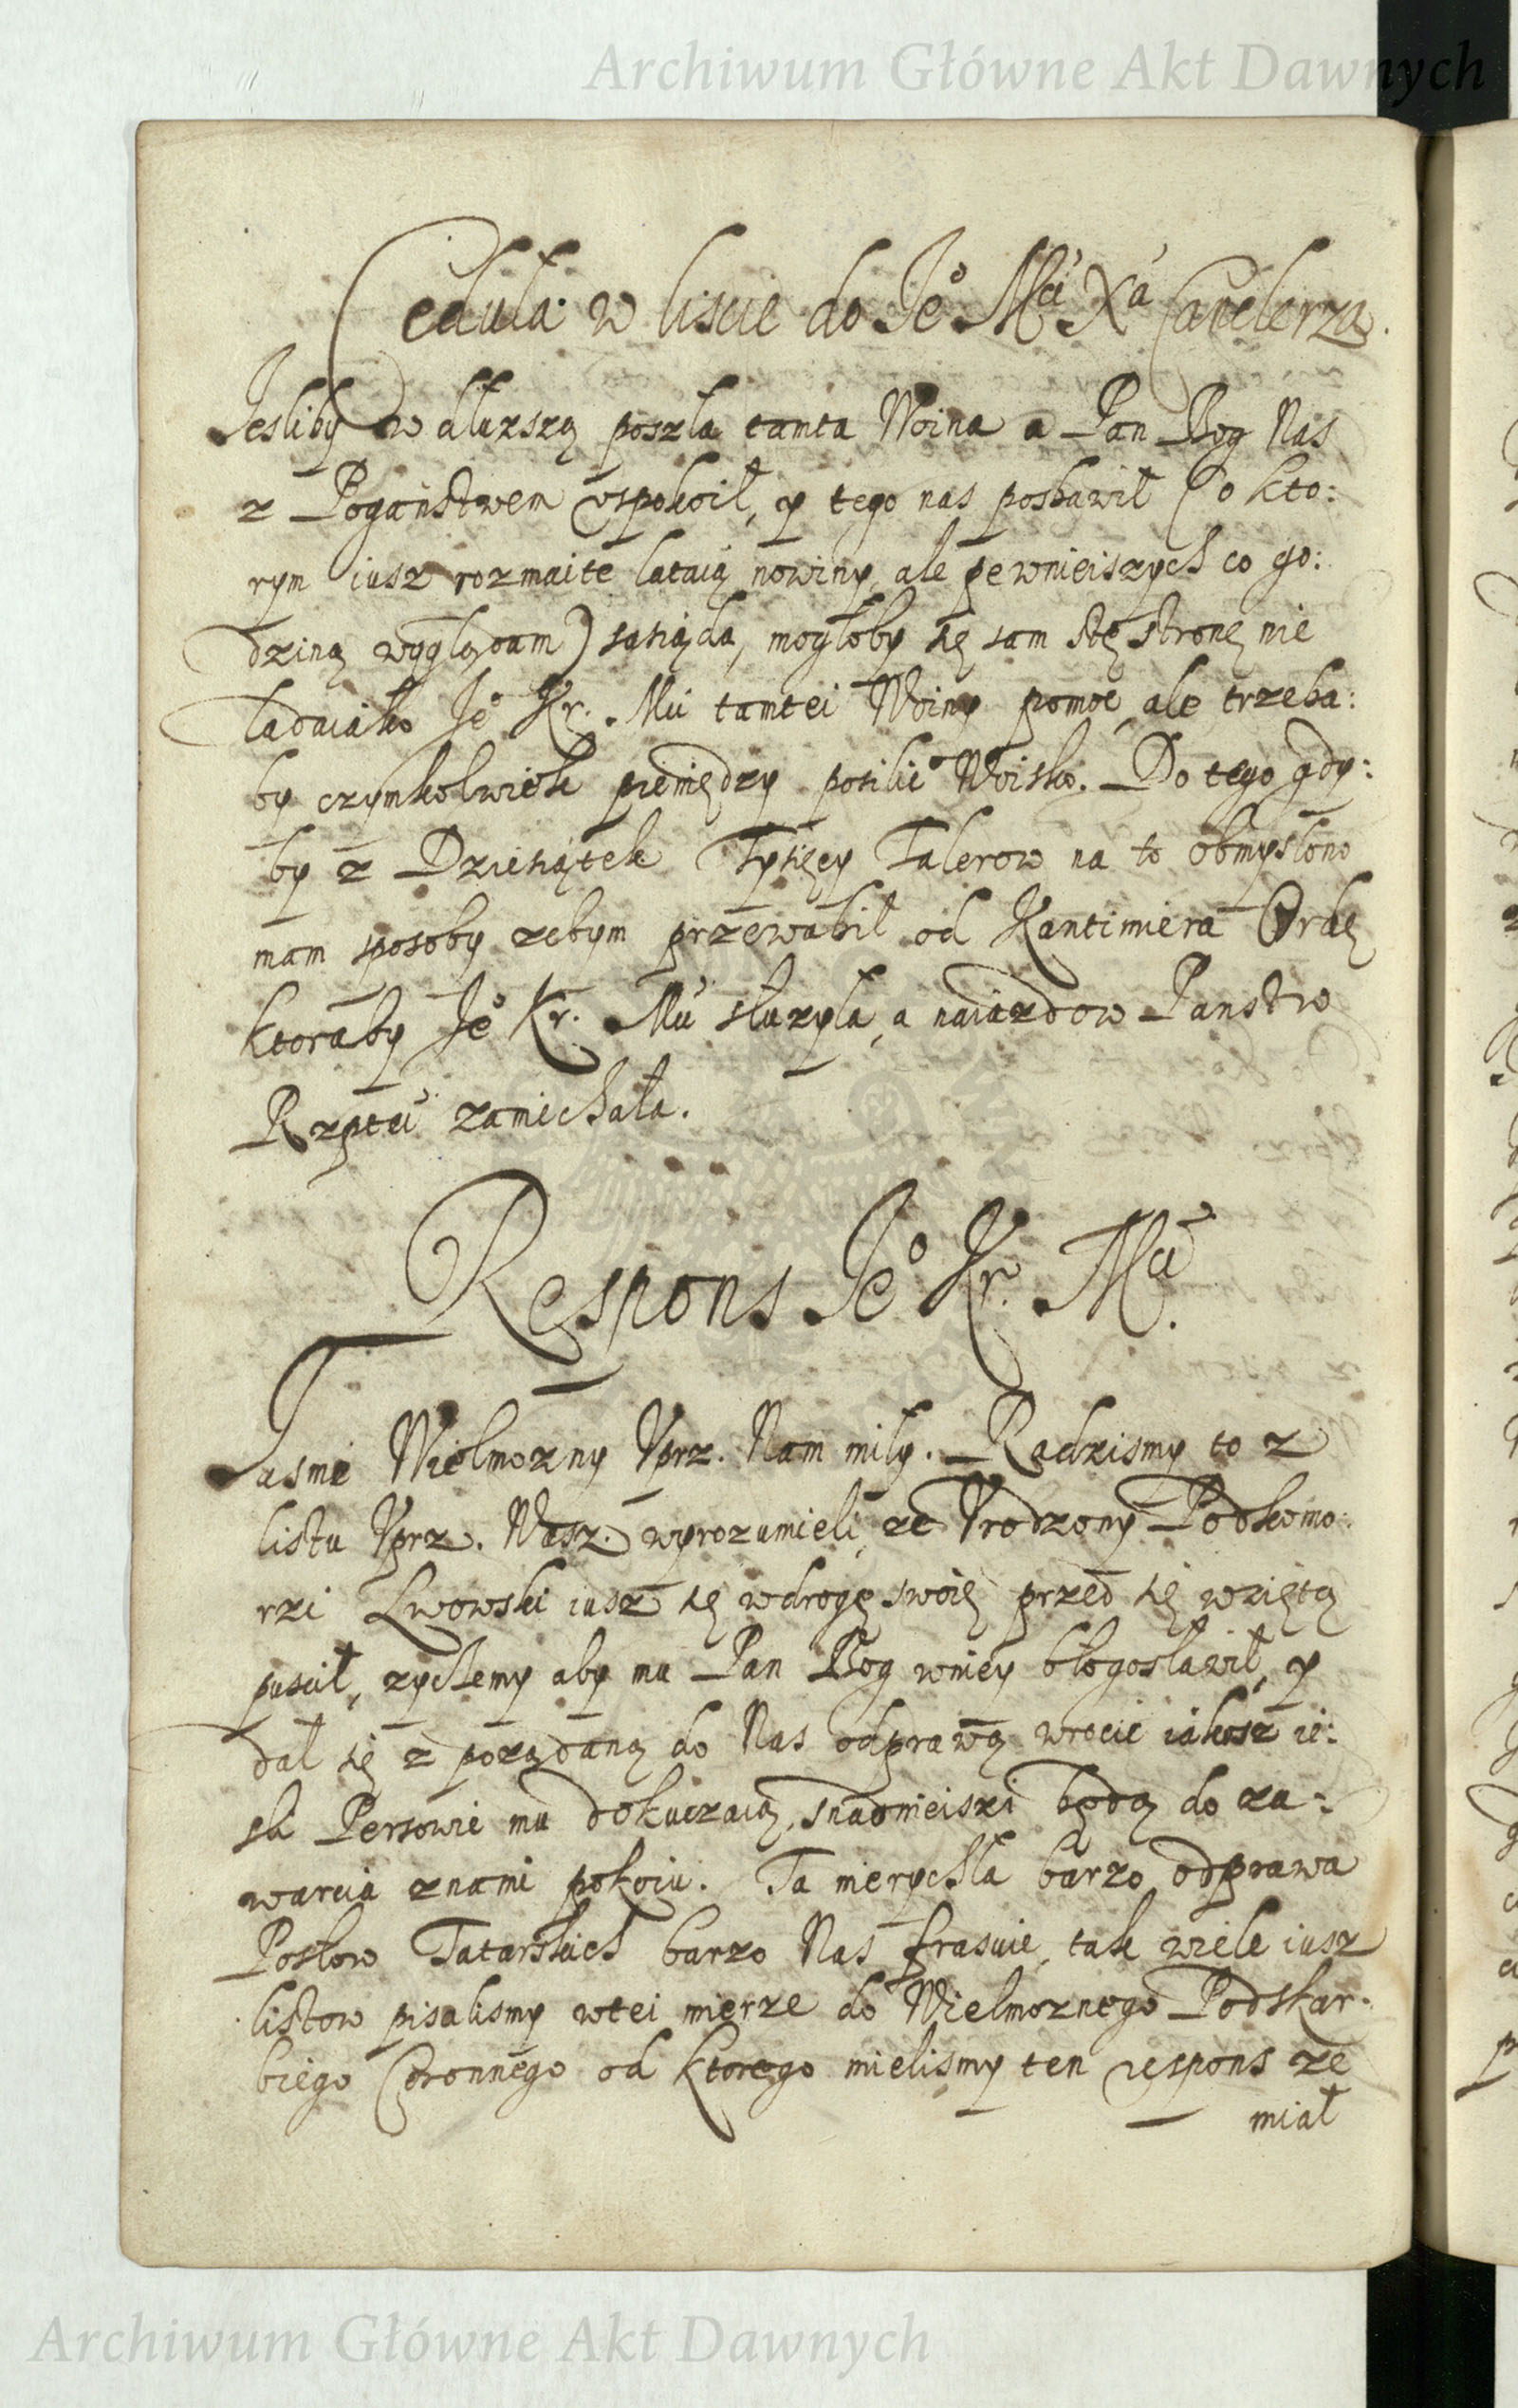 Archiwum Główne Akt Dawnych
Cedula w liscie do Je° Mći Xa Canclerza.
Jesliby w dluzszą poszla tamta Woina a Pan Bog Nas
z Poganstwem uspokoił, y tego nas pozbawił (o kto:
rym iusz rozmaite lataią nowiny, ale pewnieiszych co go:
dziną wyglądam) sąsiada, mogłoby się sam stę stronę nie
ladaiako Je° Kr. Mći tamtei Woiny pomoc, ale trzeba:
by czymkolwiek pieniędzy posilic Woisko. Do tego gdy:
by z Dziesiątek Tysięcy Talerow na to obmyslono
mam sposoby zebym przewabił od Kantimiera Ordę
ktoraby Je° Kr. Mći sluzyla, a naiazdow Panstw
Rzptei zaniechała.
Respons Je° Kr. Mći.
Jasnie Wielmozny Vprz. Nam mily. Radzismy to z
listu Vprz. Wasz. wyrozumieli, ze Vrodzony Podkomo:
rzi Lwowski iusz się wdrogę swoię przed się wziętą
puscił, zyczemy aby mu Pan Bog wniey błogosławił, y
dał się z poządaną do Nas odprawą wrocic iakosz ie:
sli Persowie mu dokuczaią, snadnieiszi będą do za:
warcia znami pokoiu. Ta nierychla barzo odprawa
Posłow Tatarskich barzo Nas frasuie, tak wiele iusz
listow pisalismy wtei mierze do Wielmoznego Podskar:
biego Coronnego od ktorego mielismy ten respons ze
miał
Archiwum Główne Akt Dawnych